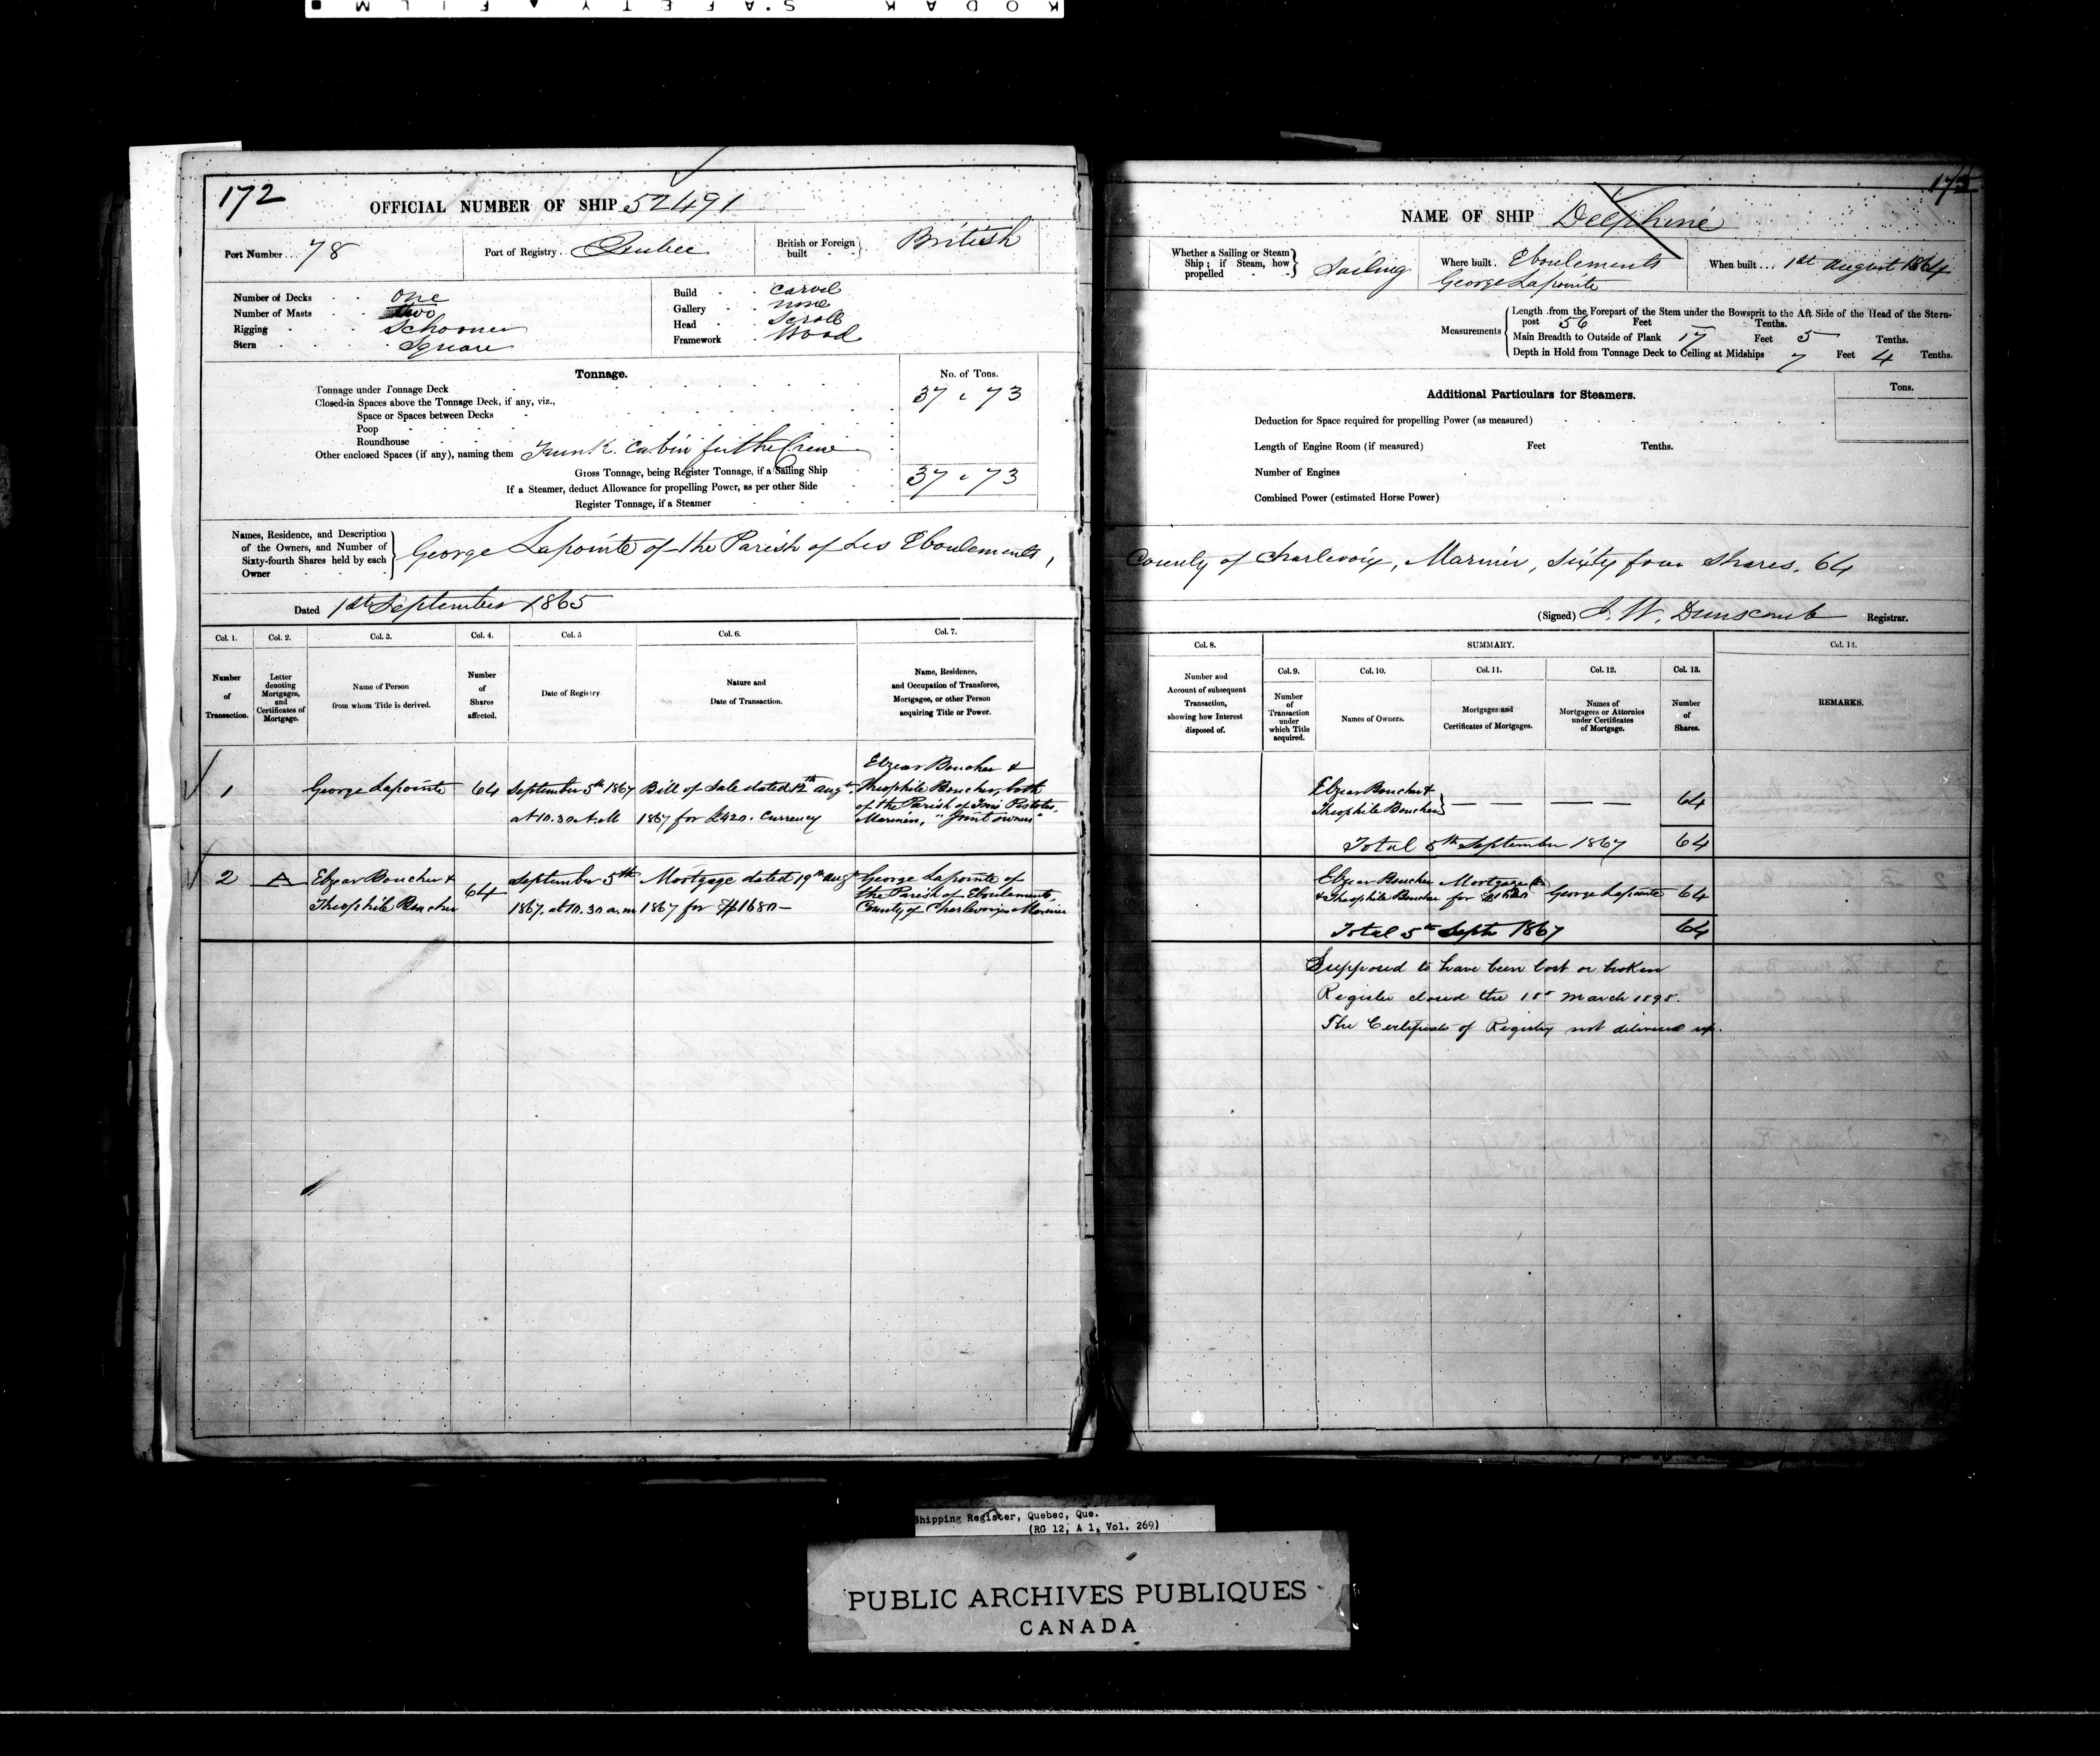 KODAK SAFETY FILM
172
OFFICIAL NUMBER OF SHIP 52491
Port Number... 78
Port of Registry.. Quebec
British or Foreign built } British
Number of Decks one
Number of Masts two
Rigging Schooner
Stern Square
Build Carvel
Gallery none
Head Scroll
Framework Wood
Tonnage.
No. of Tons.
Tonnage under Tonnage Deck 37 . 73
Closed-in Spaces above the Tonnage Deck, if any, viz.,
Space or Spaces between Decks
Poop
Roundhouse
Other enclosed Spaces (if any), naming them Trunk Cabin for the Crew
Gross Tonnage, being Register Tonnage, if a Sailing Ship 37 . 73
If a Steamer, deduct Allowance for propelling Power, as per other Side
Register Tonnage, if a Steamer
Names, Residence, and Description
of the Owners, and Number of
Sixty-fourth Shares held by each
Owner
George Lapointe of the Parish of Les Eboulements,
Dated 1st September 1865
Col. 1. Col. 2. Col. 3. Col. 4. Col. 5 Col. 6. Col. 7.
Number of Transaction.
Letter denoting Mortgages, and Certificates of Mortgage.
Name of Person from whom Title is derived.
Number of Shares affected.
Date of Registry.
Nature and Date of Transaction.
Name, Residence, and Occupation of Transferee, Mortgagee, or other Person acquiring Title or Power.
1
George Lapointe
64
September 5th 1867
at 10.30 A.M
Bill of Sale dated 12th augt
1867 for £420. Currency
Elzear Boucher &
Theophile Boucher, both
of the Parish of Trois Pistoles,
Mariners, "Joint owners"
2
A
Elzear Boucher &
Theophile Boucher
64
September 5th
1867. at 10.30 a.m
Mortgage dated 19th augt
1867 for $1680—
George Lapointe of
the Parish of Eboulements,
County of Charlevoix Mariner
NAME OF SHIP Delphine
Whether a Sailing or Steam
Ship; if Steam, how
propelled
Sailing
Where built. Eboulements
George Lapointe
When built... 1st August 1864
Measurements
Length from the Forepart of the Stem under the Bowsprit to the Aft Side of the Head of the Stern-
post 56 Feet — Tenths.
Main Breadth to Outside of Plank 17 Feet 5 Tenths.
Depth in Hold from Tonnage Deck to Ceiling at Midships 7 Feet 4 Tenths.
Additional Particulars for Steamers.
Tons.
Deduction for Space required for propelling Power (as measured)
Length of Engine Room (if measured) Feet Tenths.
Number of Engines
Combined Power (estimated Horse Power)
County of Charlevoix, Mariner, Sixty four Shares. 64
(Signed) J. W. Dunscomb Registrar.
Col. 8.
SUMMARY.
Col. 14.
Col. 9. Col. 10. Col. 11. Col. 12. Col. 13.
Number and Account of subsequent Transaction, showing how Interest disposed of.
Number of Transaction under which Title acquired.
Names of Owners.
Mortgages and Certificates of Mortgages.
Names of Mortgagees or Attornies under Certificates of Mortgage.
Number of Shares.
REMARKS.
Elzear Boucher &
Theophile Boucher } — — — — — 64
Total 5th September 1867 64
Elzear Boucher Mortgage A
& Theophile Boucher for $1680 George Lapointe 64
Total 5th Septr 1867 64
Supposed to have been lost or broken
Register closed the 18th March 1898.
The Certificate of Registry not delivered up.
Shipping Register, Quebec, Que.
(RG 12, A 1, Vol. 269)
PUBLIC ARCHIVES PUBLIQUES
CANADA